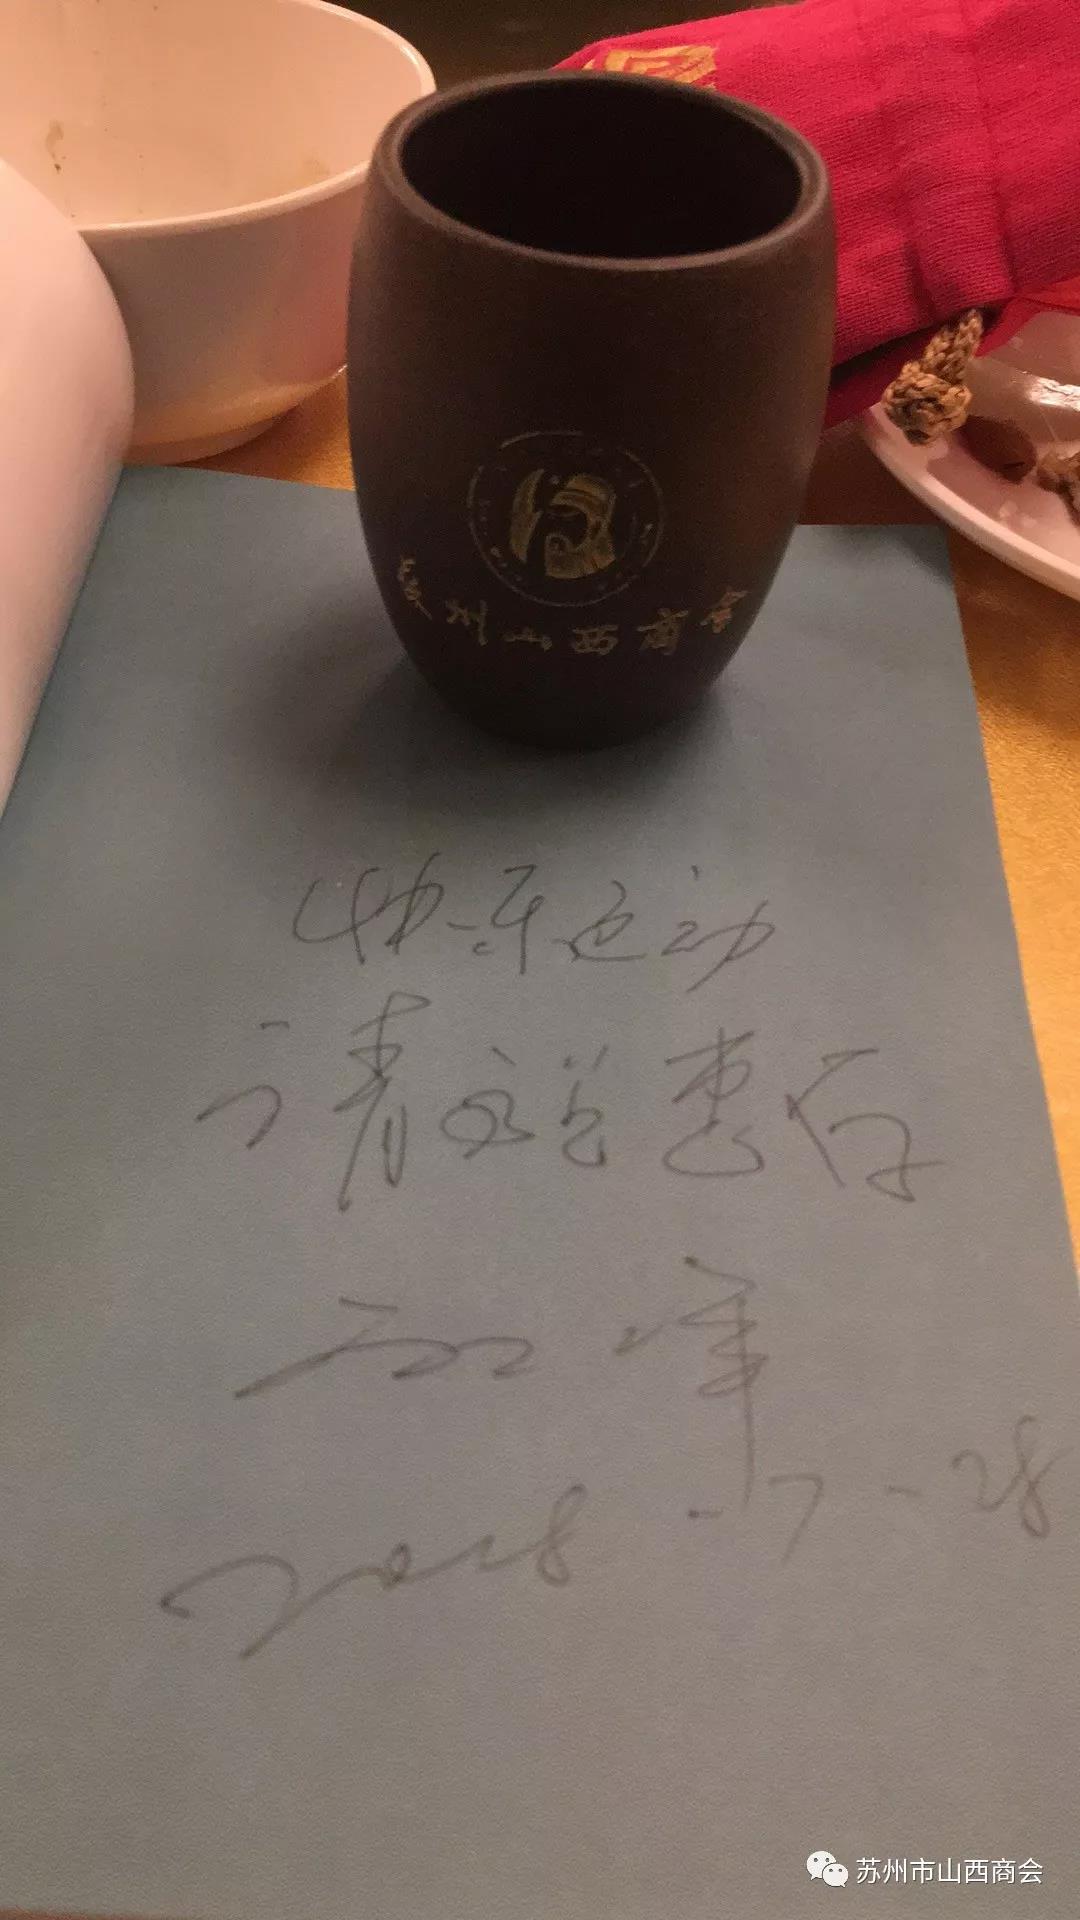 苏州山西商会
快乐运动
请文兰惠存
2018-7-28
苏州市山西商会